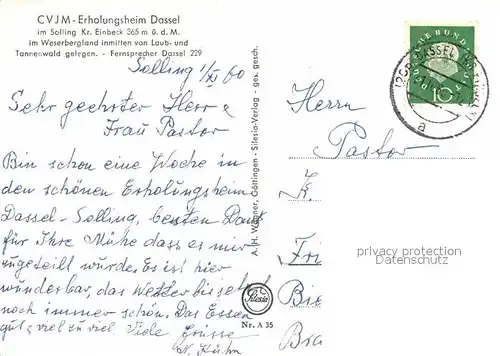 CVJM-Erholungsheim Dassel
im Solling Kr. Einbeck 365 m ü. d. M.
im Weserbergland inmitten von Laub- und
Tannenwald gelegen. - Fernsprecher Dassel 229
Solling 1/XI 60
Sehr geehrter Herr &
Frau Pastor
Bin schon eine Woche in
den schönen Erholungsheim
Dassel-Solling, besten Dank
für Ihre Mühe dass es mir
zugeteilt wurde. Es ist hier
wunderbar, das Wetter bis jetzt
noch immer schön. Das Essen
gut & viel zu viel. Viele Grüsse
N. Kühn
A. H. Wagner, Göttingen - Silesia-Verlag - ges. gesch.
Silesia
Nr. A 35
DEUTSCHE BUNDESPOST
10
DASSEL
a
Herrn
Pastor
K.
Fri
Bie
Bra
privacy protection
Datenschutz